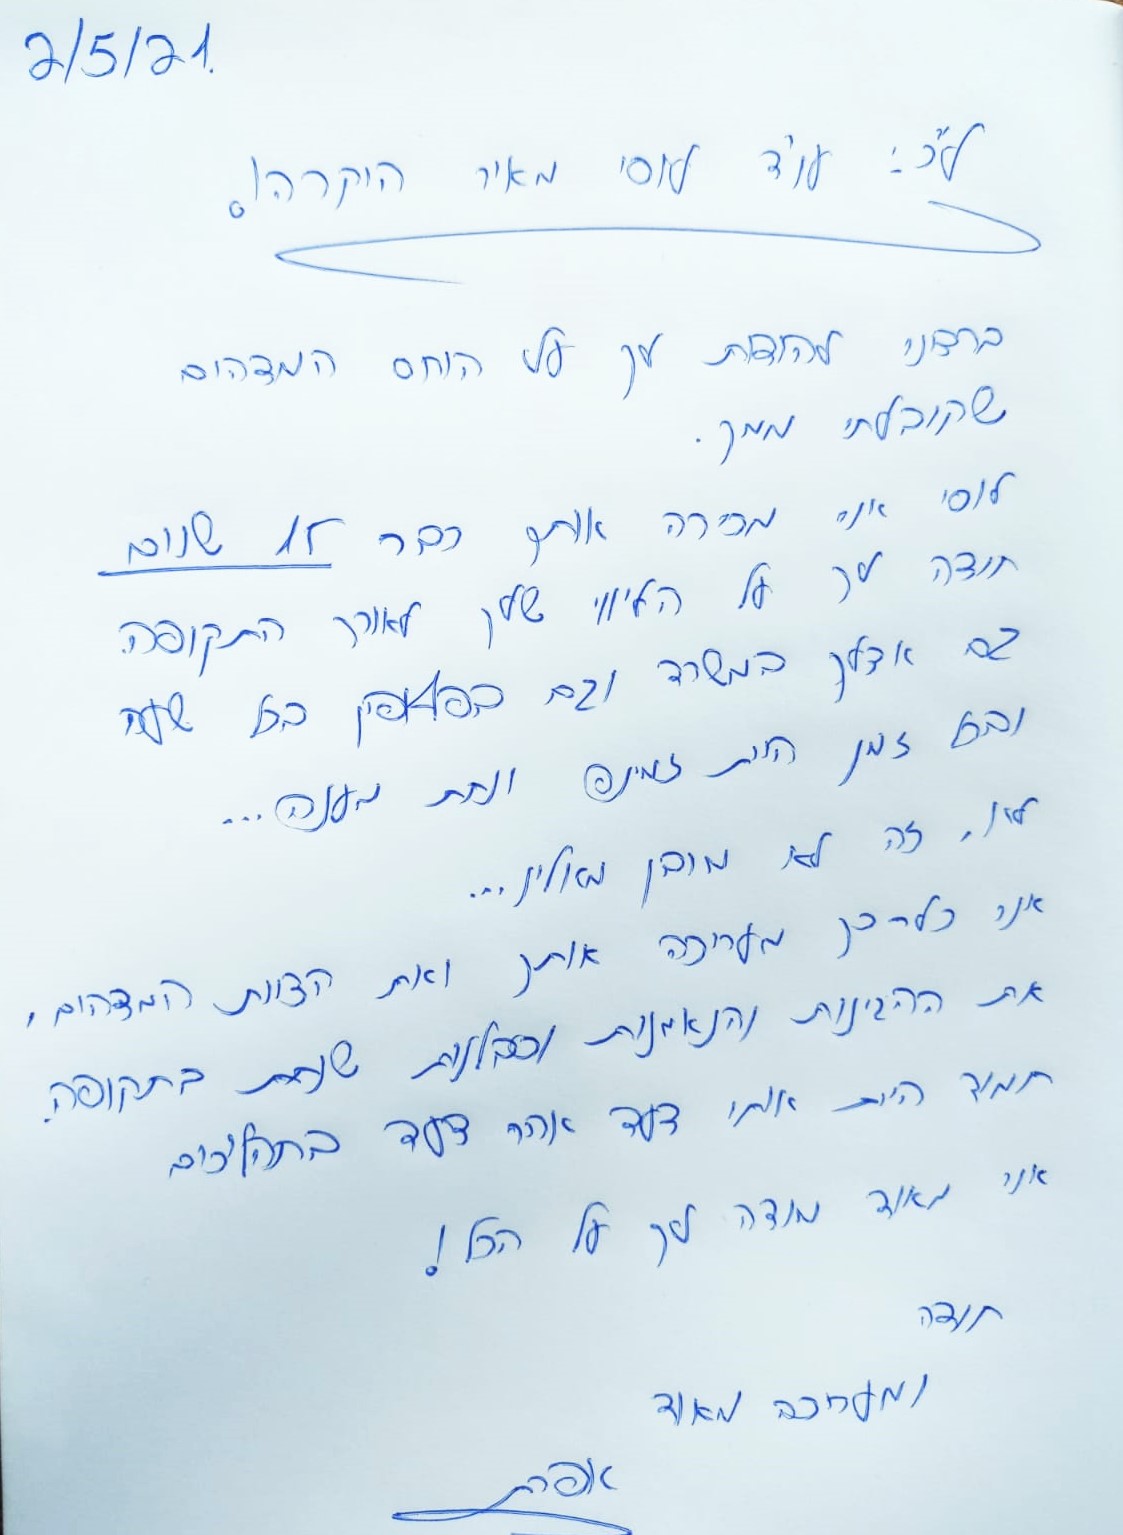 2/5/21.
לע"כ: עו"ד לוסי מאיר היקרה!
ברצוני להודות לך על היחס המדהים
שקיבלתי ממך.
לוסי אני מכירה אותך כבר 15 שנים
תודה לך על הליווי שלך לאורך התקופה.
גם אצלך במשרד וגם בפלאפון בכל שעה
ובכל זמן היית זמינה ונתת מענה...
לא, זה לא מובן מאליו...
אני כל כך מעריכה אותך ואת הצוות המדהים,
את ההגינות והנאמנות וסבלנות שנתת בתקופה.
תמיד היית אותי צעד אחר צעד בתהליכים
אני מאוד מודה לך על הכל!
תודה
ומעריכה מאוד
אפרת